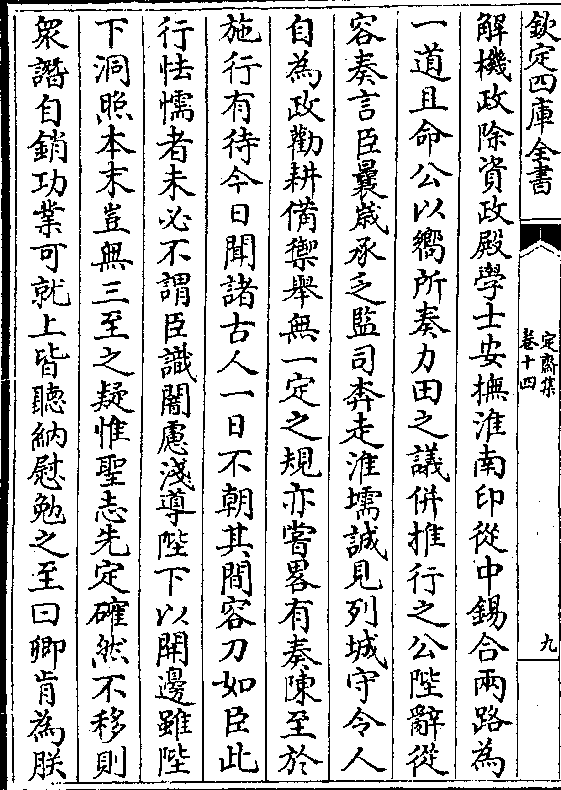 欽定四庫全書
定齋集
卷十四
九
解機政除資政殿學士安撫淮南印從中錫合兩路為
一道且命公以嚮所奏力田之議併推行之公陛辭從
容奏言臣曩歲承乏監司奔走淮壖誠見列城守令人
自為政勸耕備禦舉無一定之規亦嘗畧有奏陳至於
施行有待今日聞諸古人一日不朝其間容刀如臣此
行怯懦者未必不謂臣識闇慮淺導陛下以開邊雖陛
下洞照本末豈無三至之疑惟聖志先定確然不移則
衆譖自銷功業可就上皆聽納慰勉之至曰卿肯為朕